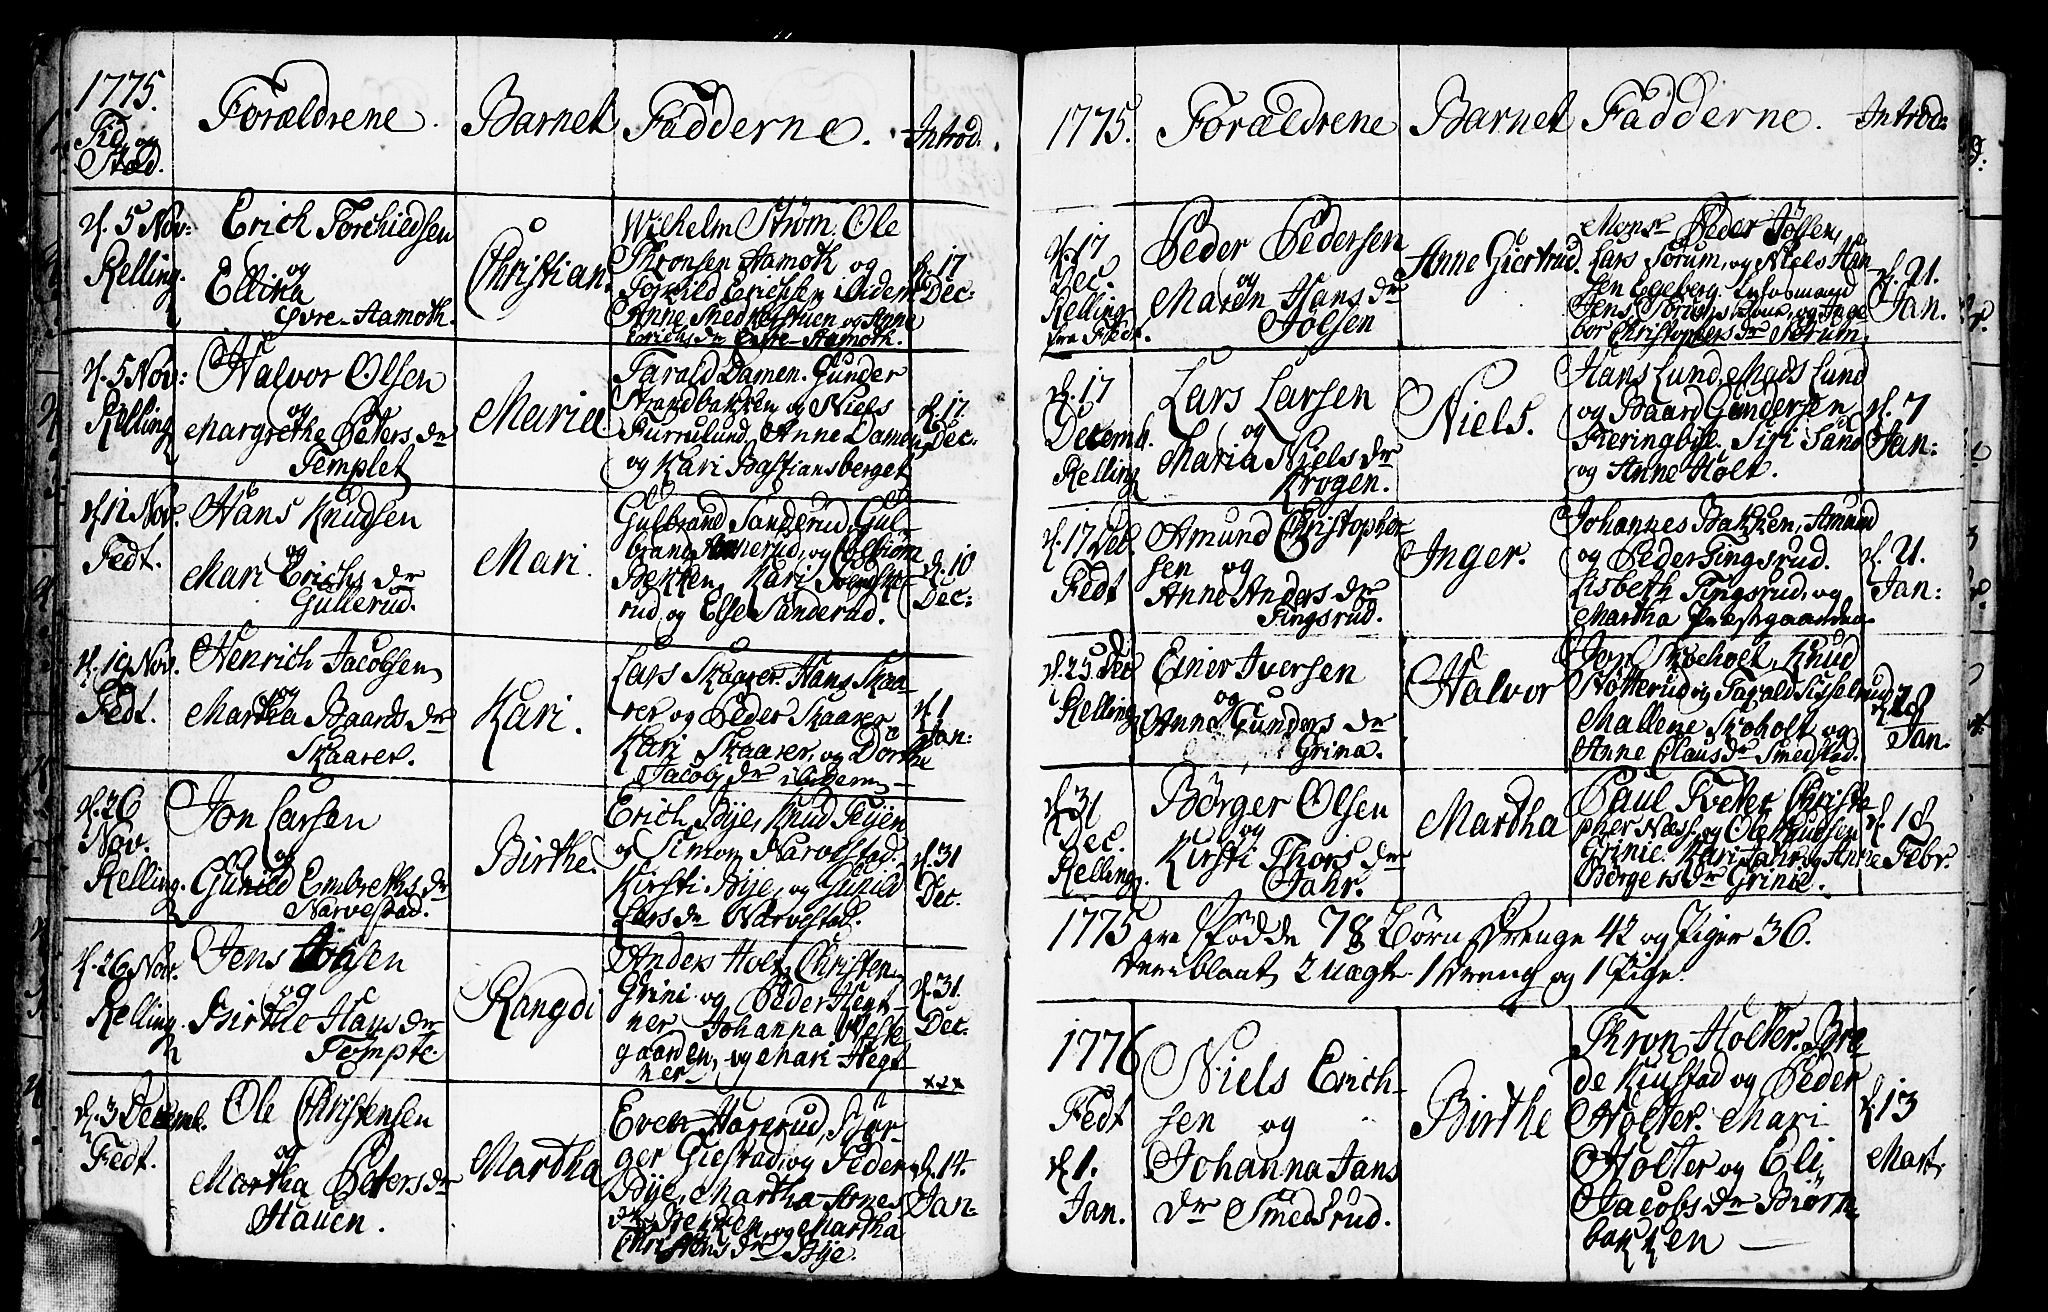 1775.
Tid og
Stæd.
Forældrene.
Barnet
Fadderne.
Introd:
d. 5 Nov:
Relling.
Erich Torchildsen
og
Ellika
Øvre-Aamoth.
Christian.
Wilhelm Strøm. Ole
Thronsen Aamoth og
Torkild Erichsen ibidem
Anne Snedkerstuen og Anne
Erichs dr Øvre-Aamoth.
d. 17
Dec:
d. 5 Nov:
Relling
Halvor Olsen
og
Margrethe Peters dr
Templet
Maria.
Tarald Damen. Gunder
Strandbakken og Niels
Furrulund, Anne Damen
og Kari Bastiansberget
d. 17.
Dec:
d. 12 Nov.
Fedt.
Hans Knudsen
og
Mari Erichs dr
Gullerud.
Mari.
Gulbrand Sanderud, Gul-
brand og
Bekken, Kari
rud, og Else Sanderud.
d. 10
Dec:
d. 19 Nov.
Fedt.
Henrich Jacobsen
og
Martha Baards dr
Skaarer.
Kari.
Lars Skaarer. Hans Skaa-
rer og Peder Skaarer
Kari Skaarer, og Dorthe
Jacobs dr ibidem
d. 1
Jan:
d. 26
Nov.
Relling.
Jon Larsen
og
Gunild Embreths dr
Narvestad.
Birthe.
Erich Bye, Knud Teyen
og Simon Narvestad.
Kirsti Bye, og Gunild
Lars dr Narvestad.
d. 31
Dec.
d. 26 Nov.
Relling.
Jens Olsen
og
Birthe Hans dr
Temple.
Rangdi
Anders Holt, Christen
Grini og Peder Hent-
ner Johanna Veste
gaarden, og Mari Hegt-
ner
d. 31.
Dec.
d. 3 Decemb.
Fedt.
Ole Christensen
og
Martha Peters dr
Hauen.
Martha
Even Harerud, Bør-
ger Giestad, og Peder
Bye, Martha Arnes
dr Bekken, og Martha
Christens dr Bye.
xxx
d. 14.
Jan:
1775.
Forældrene
Barnet
Fadderne.
Introd:
d. 17
Dec.
Relling
fra Fedt.
Peder Pedersen
og
Maren Hans dr
Tølsen
Anne Giertrud.
Monsr Peder Tølsen,
Lars Sørum, og Niels Han
sen Egeberg.
Jens Sørums kone, og Inge
bor Christophers dr Sørum
d. 21.
Jan.
d. 17
Decemb.
Relling
Lars Larsen
og
Maria Niels dr
Krogen.
Niels.
Hans Lund, Mads Lund
og Baard Gundersen
Fieringbye. Siri Sand
og Anne Holt.
d. 7
Jan:
d. 17 Dec
Fedt
Amund Christopher
sen og
Anne Anders dr
Tingsrud.
Inger.
Johannes Bakken, Amund
og Peder Tingsrud.
Lisbeth Tingsrud, og
Martha Præstgaarden.
d. 21.
Jan:
d. 25 Dec
Relling
Einer Iversen
og
Anne Gunders dr
Grina.
Halvor
Jon Skøeholt, Knud
Støtterud og Tarald Sisselrud
Mallene Skøholt og
Anne Claus dr Smedstad.
d. 28
Jan.
d. 31
Dec.
Relling.
Børger Olsen
og
Kirsti Thors dr
Jahr.
Martha
Paul Tveter Christo
pher Næss. og Ole Knudsen
Grinie. Kari Jahr og Anne
Børgers dr Grinie.
d. 18
Febr.
1775 ere fødde 78 Børn Drenge 42 og Piger 36.
deriblant 2 uægte. 1 Dreng og 1 Pige.
1776
Fedt
d. 1.
Jan.
Niels Erich-
sen og
Johanna Jans
dr Smedsrud.
Birthe
Thron Holter. Bre
de Kiustad og Peder
Holter. Mari
Holter og Eli
Jacobs dr Biørn-
bakken
d. 13
Mart.